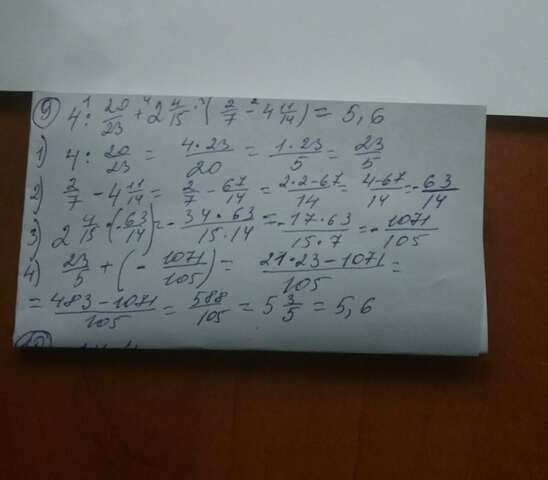 9) 4 : 20/23 + 2 4/15 · (2/7 - 4 11/14) = 5,6
1) 4 : 20/23 = 4·23/20 = 1·23/5 = 23/5
2) 2/7 - 4 11/14 = 2/7 - 67/14 = 2·2-67/14 = 4-67/14 = -63/14
3) 2 4/15 · (-63/14) = - 34·63/15·14 = -17·63/15·7 = -1071/105
4) 23/5 + (- 1071/105) = 21·23-1071/105 =
= 483-1071/105 = 588/105 = 5 3/5 = 5,6